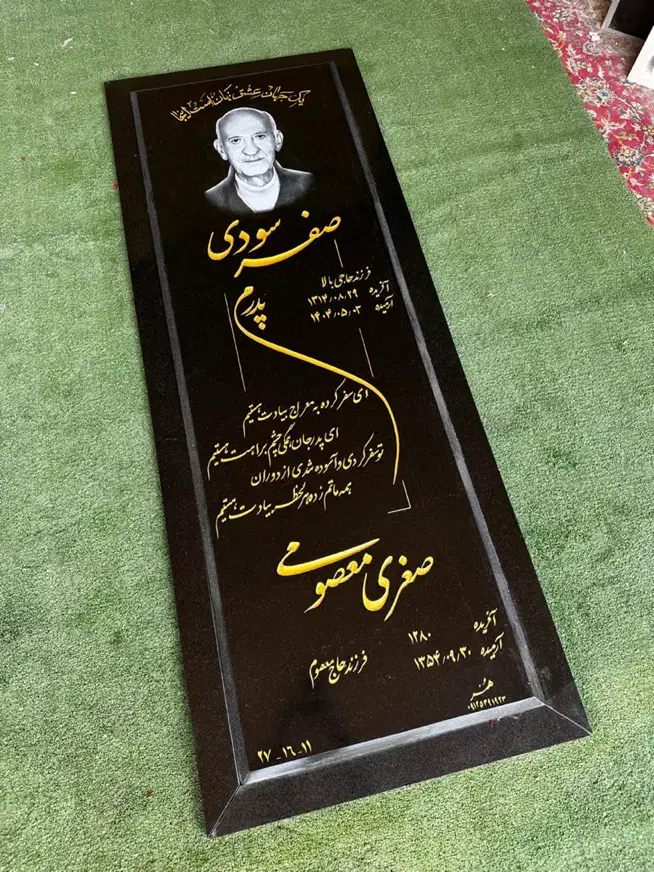 یک جهان عشق نهان است اینجا
صفر سودی
فرزند حاجی بالا
آفریده ۱۳۱۴/۰۸/۲۹
آرمیده ۱۴۰۴/۰۵/۰۳
پدرم
ای سفر کرده به معراج بیادت هستیم
ای پدر جان همگی چشم براهت هستیم
تو سفر کردی و آسوده شدی از دوران
همه ماتم زده هر لحظه بیادت هستیم
صغری معصومی
آفریده ۱۲۸۰
آرمیده ۱۳۵۴/۰۹/۳۰
فرزند حاج معصوم
هنر
۲۷ - ۱۶ - ۱۱